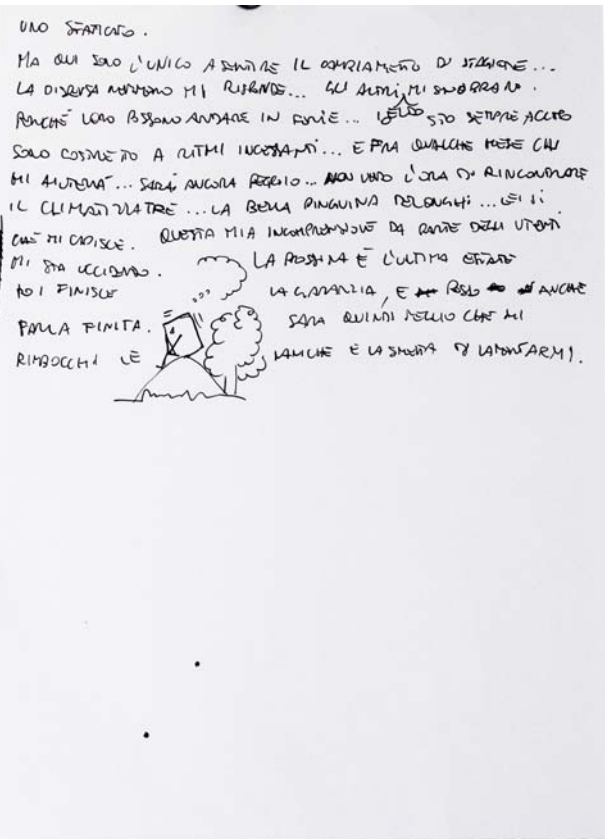 UNO STATICATO.
MA QUI SONO L'UNICO A SENTIRE IL CAMBIAMENTO DI STAGIONE...
LA DISPENSA NEMMENO MI RISPONDE... GLI ALTRI, MI SNOBBANO.
PERCHÉ LORO POSSONO ANDARE IN FERIE... IO STO SEMPRE ACCESO
SONO COSTRETTO A RITMI INCESSANTI... E FRA QUALCHE MESE CHI
MI AIUTERÀ... SARÀ ANCORA PEGGIO... NON VEDO L'ORA DI RINCONTRARE
IL CLIMATIZZATRE... LA BELLA PINGUINA DELONGHI... LEI SÌ
CHE MI CAPISCE. QUESTA MIA INCOMPRENSIONE DA PARTE DEGLI UTENTI
MI STA UCCIDENDO. LA PROSSIMA È L'ULTIMA ESTATE
POI FINISCE LA GARANZIA, E POSSO ANCHE
FARLA FINITA. SARÀ QUINDI MEGLIO CHE MI
RIMBOCCHI LE MANICHE E LA SMETTA DI LAMENTARMI.